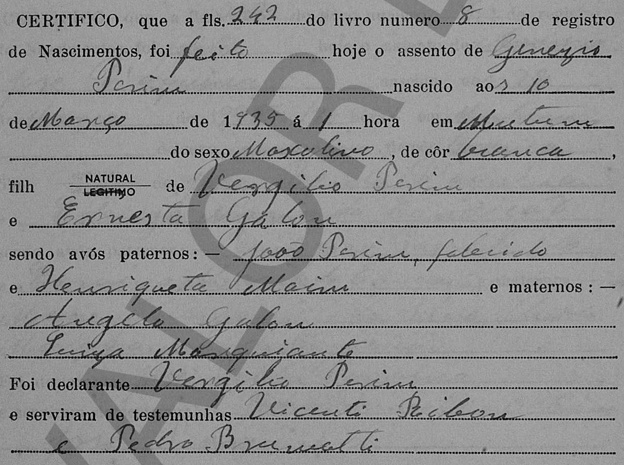 CERTIFICO, que a fls. 242 do livro numero 8 de registro
de Nascimentos, foi feito hoje o assento de Genezio
Perim nascido aos 10
de Março de 1935 á 1 hora em Mutum
do sexo Maxolino, de côr branca,
filh NATURAL LEGITIMO de Vergilio Perim
e Ernesta Galon
sendo avós paternos: — João Perim, falecido
e Henriqueta Maim e maternos: —
Angelo Galon
Luiza
Foi declarante Vergilio Perim
e serviram de testemunhas Vicenti
e Pedro
VALOR